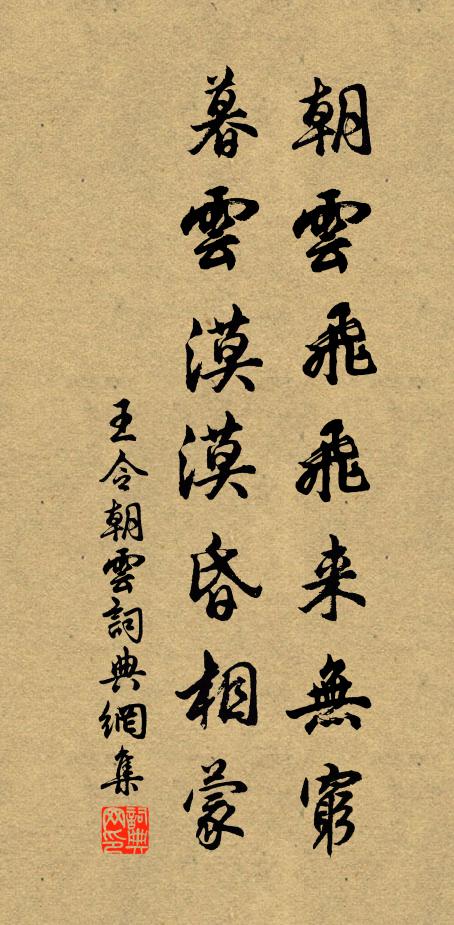 朝雲飛飛来無窮
暮雲漠漠昏相蒙
王令朝雲詞典網集
詞典網印